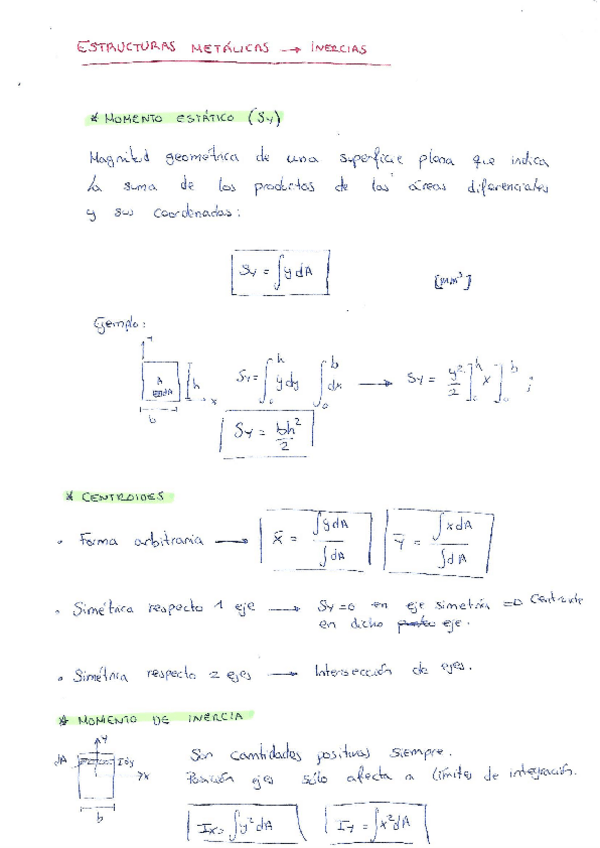 ESTRUCTURAS METÁLICAS → INERCIAS
* MOMENTO ESTÁTICO (Sy)
Magnitud geométrica de una superficie plana que indica
la suma de los productos de las áreas diferenciales
y sus coordenadas:
Sy = ∫y dA [mm³]
Ejemplo:
Y
A
dA
h
x
b
Sy = ∫₀ʰ y dy ∫₀ᵇ dx → Sy = y²/2 ]₀ʰ x ]₀ᵇ ;
Sy = bh²/2
* CENTROIDES
• Forma arbitraria → x̄ = ∫ydA / ∫dA ȳ = ∫xdA / ∫dA
• Simétrica respecto 1 eje → Sy=0 en eje simetría => Centroide
en dicho eje.
• Simétrica respecto 2 ejes → Intersección de ejes.
* MOMENTO DE INERCIA
Y
dA
dy
x
b
Son cantidades positivas siempre.
Posición ejes sólo afecta a límites de integración.
Ix = ∫y²dA Iy = ∫x²dA